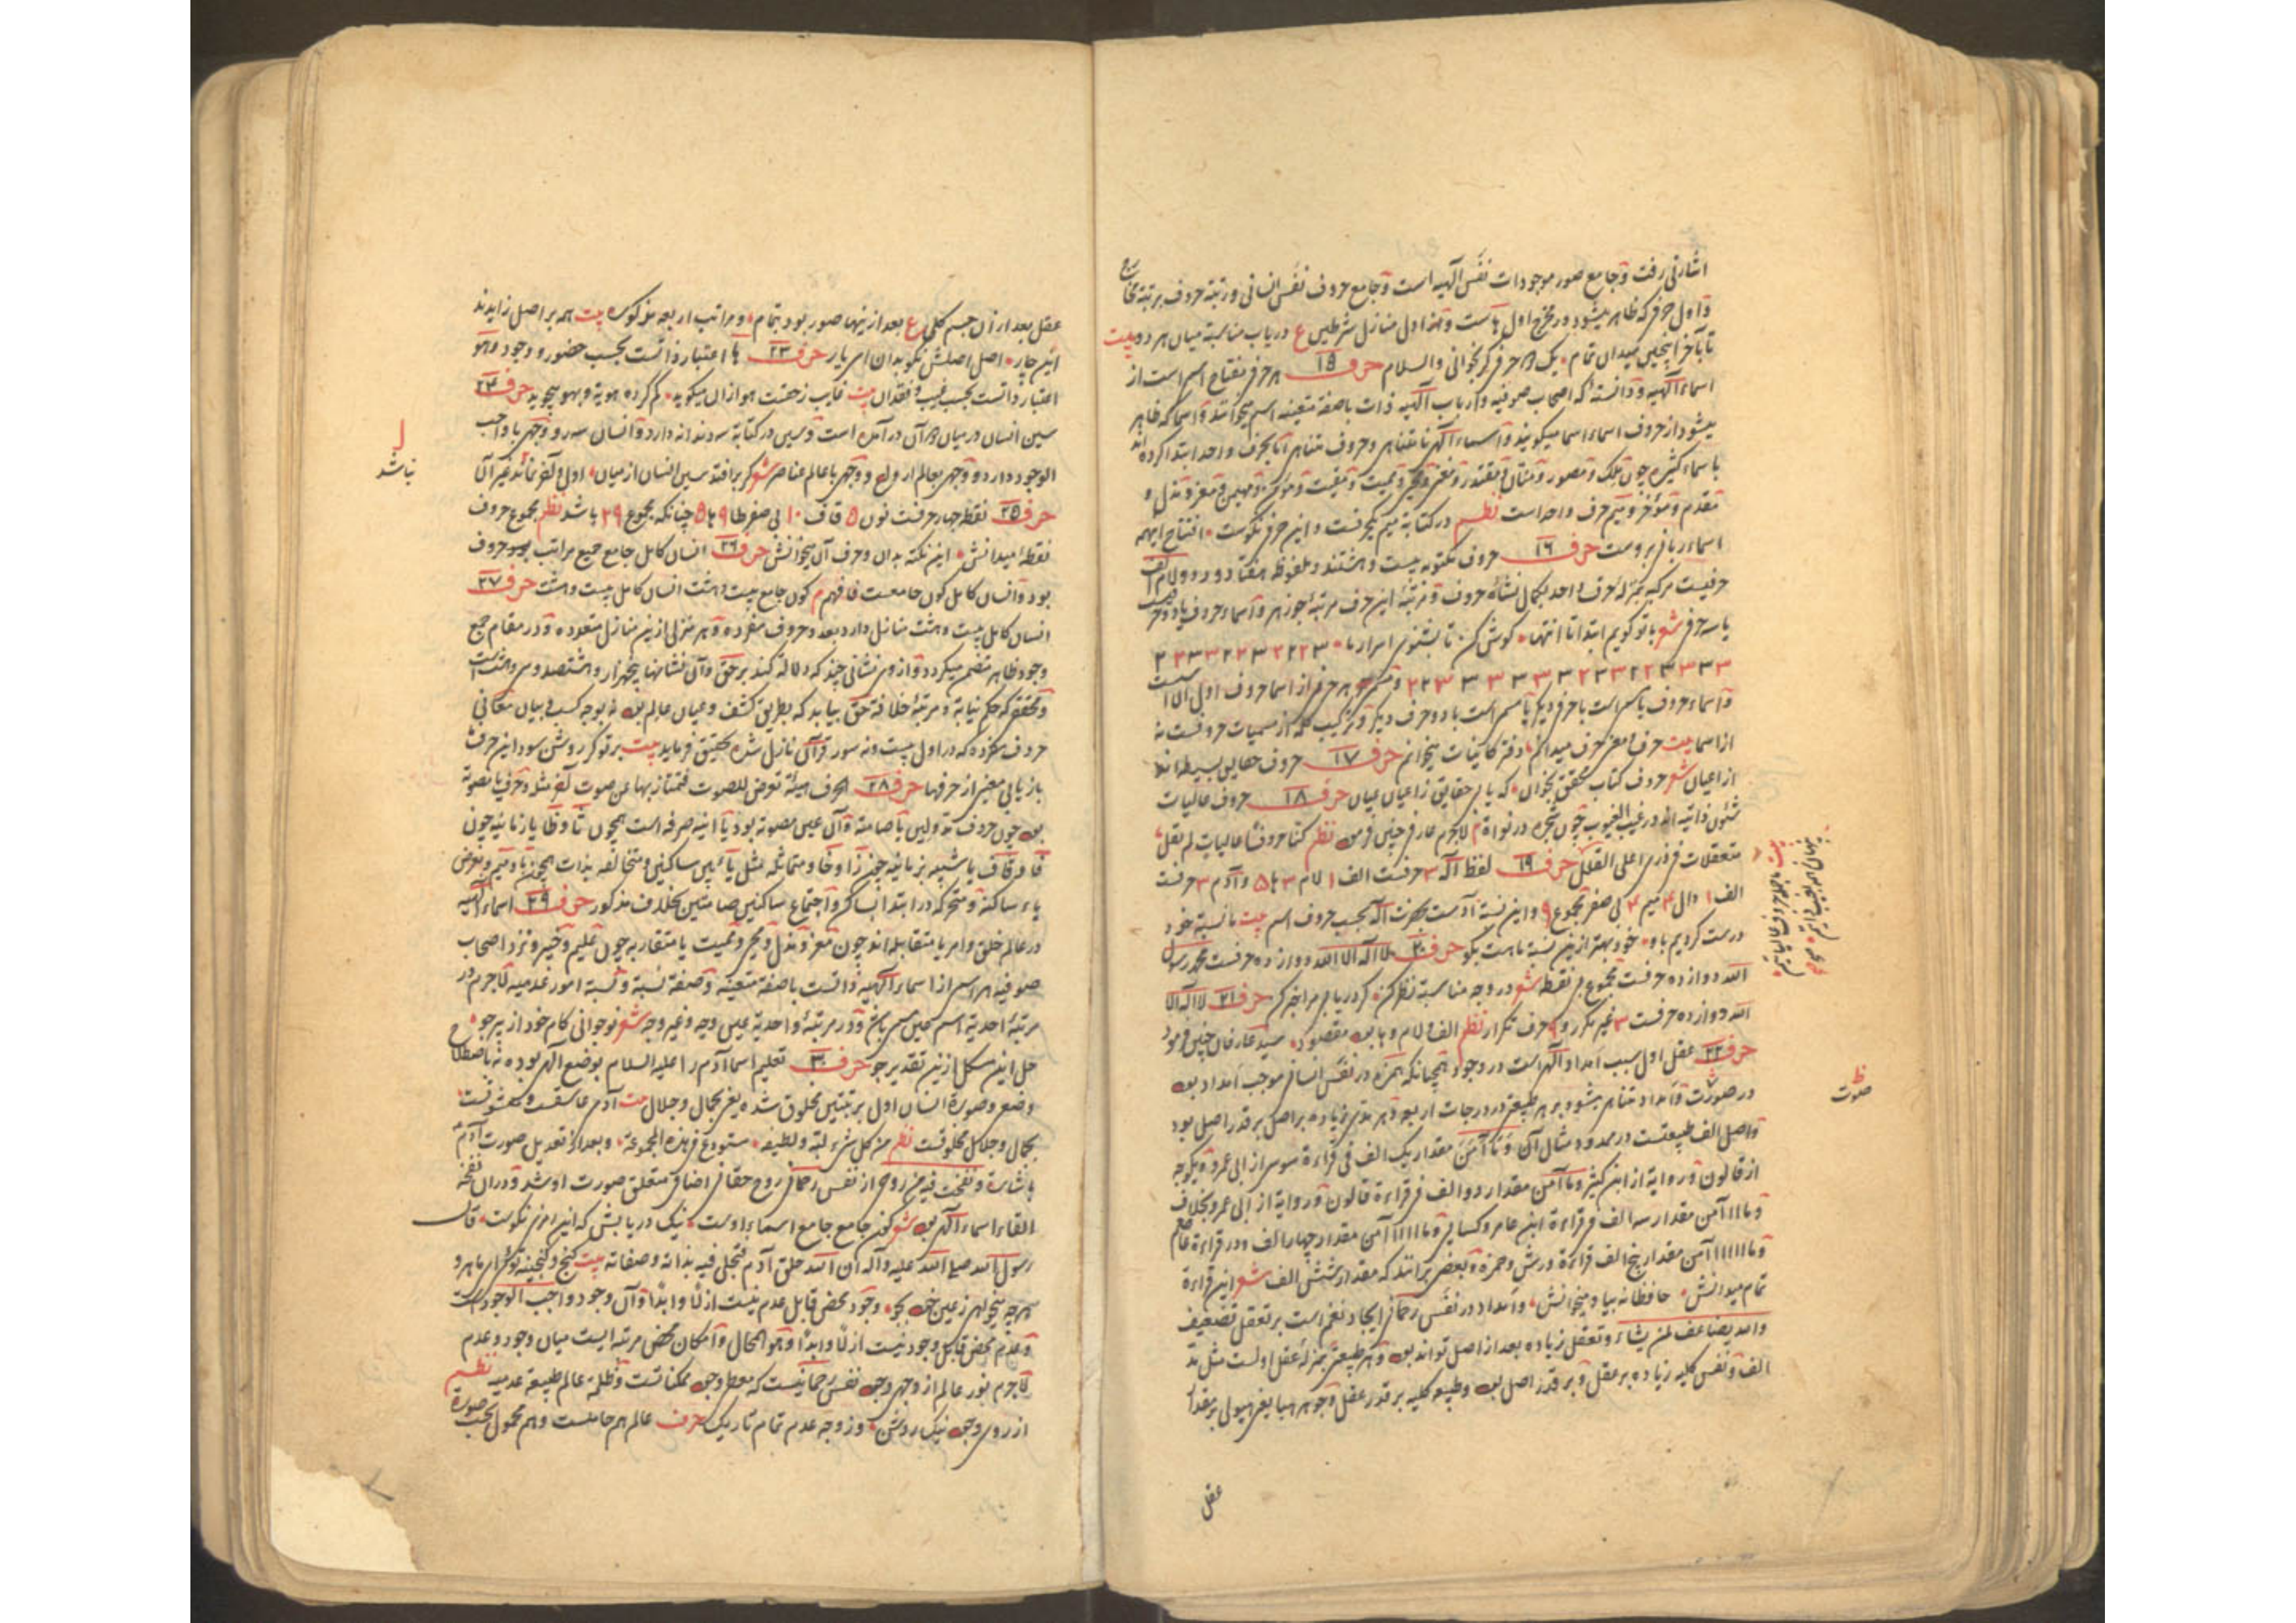 اشارتی رفت و جامع صور موجودات نفس الهیه است و جامع حروف نفس انسانی و رتبة حروف برتبة مخارج
و اول حرفی که ظاهر میشود در مخرج اول هاست و هنه اول منازل شرطین ع دریاب مناسبة میان هر دو بیت
تا بآخر اینچنین میدان تمام یک حرف گر بخوانی والسلام حرف ۱۵ هر حرف مفتاح اسم است از
اسماء الهیه و دانسته که اصحاب صوفیه و ارباب الهیه ذات باصفة متعینه اسم میخوانند و اسما که ظاهر
میشود از حروف اسماء اسما میگویند و اسماء الهی نامتناهی و حروف متناهی اما بحرف واحد ابتدا کرده اند
باسماء کثیره چون ملک و مصور و منان و مقتدر و منعم و محیی و ممیت و مقیت و مومن و مهیمن و معز و مذل و
مقدم و مؤخر و میم حرف واحد است نظم در کتابة میم یکحرفست و این حرف نکوست افتتاح اینهمه
اسماء ربانی بروست حرف ۱۶ حروف مکتوبه بیست و هشتند و ملفوظه هفتاد و دو و لام الف
حرفیست مرکب بمنزلهٔ حرف واحد بکمال نشاهٔ حروف و مرتبهٔ این حرف مرتبهٔ جوزهر و اسماء حروف یا دو حرفست
یا سه حرف شعر با تو گویم ابتدا تا انتها گوش کن تا بشنوی اسرار ما ۳ ۲ ۲ ۲ ۳ ۲ ۲ ۳ ۳ ۳ ۳
۳ ۳ ۳ ۳ ۲ ۲ ۳ ۳ ۲ ۳ ۳ ۳ ۳ ۳ ۲ ۲ و مسمی هر حرفی از اسما حروف اول آن اسمست
و اسماء حروف یا اسم است با حرف دیگر یا مسمی است با دو حرف دیگر و ترکیب کلمه از مسمیات حروفست نه
از اسما بیت حرف و معنی حرف میدانم دفتر کاینات میخوانم حرف ۱۷ حروف حقایق بسیطه اند
از اعیان شعر حروف کتاب محقق بخوان که یابی حقایق ز اعیان عیان حرف ۱۸ حروف عالیات
شئون ذاتیه اند در غیب الغیوب چون شجره در نواة م لاجرم عارفی چنین فرمود نظم کنا حروفا عالیات لم نقل
متعلقات فی ذری اعلی القلل حرف ۱۹ لفظ اله ۳ حرفست الف ۱ لام ۳ ها ۵ و آدم ۳ حرفست
الف ۱ دال ۴ میم ۴ بی صفر مجموع ۹ و این نسبة آدمست بحضرت اله بحسب حروف اسم بیت ما نسبة خود
درست کردیم باو خود بهتر ازین نسبة ما هست بگو حرف ۲۰ لا اله الا الله دوازده حرفست محمد رسول
الله دوازده حرفست مجموع بی نقطه شعر در وجه مناسبة نظر کن گر دریابی مرا خبر کن حرف ۲۱ لا اله الا
الله دوازده حرفست ۳ غیر مکرر و ۹ حرف تکرار نظم الف و لام و ها بود مقصود سید عارفان چنین فرمود
حرف ۲۲ عقل اول سبب امداد الهی است در وجود همچنانکه همزه در نفس انسانی موجب امداد بود
در صورت و امداد متناهی میشود بر هر طبیعتی در درجات اربعه و هر مدی زیاده بر اصل بر قدر اصل بود
و اصل الف طبیعتست در ممدود و مثال آن و ما آمن مقدار یک الف فی قراءة سوسی از ابی عمرو و یکوجه
از قالون و روایة از ابن کثیر و ما آمن مقدار دو الف فی قراءة قالون و روایة از ابی عمرو بخلاف
و ماااا آمن مقدار سه الف فی قراءة ابن عامر و کسائی و مااااا آمن مقدار چهار الف و در قراءة عاصم
و ماااااا آمن مقدار پنج الف قراءة ورش و حمزه و بعضی برانند که مقدار شش الف شعر این قراءة
تمام میدانش حافظانه بیا و میخوانش و امداد در نفس رحمانی ایجاد نعم است بر تعقل تضعیف
والله یضاعف لمن یشاء و تعقل زیاده بعد از اصل تواند بود و هر طبیعتی بمنزلهٔ عقل اولست مثل مد
الف و نفس کلیه زیاده بر عقل و بر قدر اصل بود و طبیعه کلیه بر قدر عقل و جوهر هبا یعنی هیولی بر مقدار
عقل
صورت
عقل بعد از آن جسم کلی ع بعد ازینها صور بود بتمام و مراتب اربعه مذکوره بیت همه بر اصل زایدند
این چار اصل اصلش نکو بدان ای یار حرف ۲۳ ها اعتبار ذاتست بحسب حضور و وجود و هو
اعتبار ذاتست بحسب غیب و فقدان بیت غایب ز حقست هو از ان میگوید گم کرده هویة و بهو میجوید حرف ۲۴
سین انسان در میان در آمده است و سین در کتابة سه دندانه دارد و انسان سه رو و جهی با واجب
الوجود دارد و وجهی بعالم ارواح و وجهی با عالم عناصر شعر گر برافتد سین انسان از میان اول و آخر نماند غیر آن
نباشد
حرف ۲۵ نقطه چهار حرفست نون ۵ قاف ۱۰ بی صفر طا ۹ ها ۵ چنانکه مجموع ۲۹ باشد نظم مجموع حروف
نقطه میدانش این نکته بدان و حرف آن میخوانش حرف ۲۶ انسان کامل جامع جمیع مراتب حروف
بود و انسان کامل کون جامعست فافهم م کون جامع بیست و هشت انسان کامل بیست و هشت حرف ۲۷
انسان کامل بیست و هشت منازل دارد بعدد حروف مفرده و هر منزلی ازین منازل متعدده و در مقام جمع
وجود ظاهر منضم میگردد و ازو نشانی چند که دلالة کند بر حق و آن نشانها پنجهزار و هشتصد و سی و هشت است
و محققی که حکم نیابة و مرتبهٔ خلافة حق بیابد که بطریق کشف و عیان عالم بود نه بوجه کسب و بیان معانی
حروف مفرده که در اول بیست و نه سور قرآن نازل شده تحقیق فرماید بیت بر تو گر روشن شود این حرفها
بازیابی معنی از حرفها حرف ۲۸ الحرف هیئة تعرض للصوت فتمتاز بها عن صوت آخر مثله و حرف یا مصوته
بود چون حروف مد و لین یا صامته و آن غیر مصوته بود یا آنیه صرفه است همچون تا و طا یا زمانیه چون
فا و قاف یا شبیه بزمانیه چون زا و خا و متماثله مثل یائین ساکنین و متخالفه بذات همچون یا و میم و بعرض
یاء ساکنة و متحرکه در ابتدا بساکن و اجتماع ساکنین صامتین بخلاف مذکور حرف ۲۹ اسماء الهیه
در عالم خلق و امر یا متقابله اند چون معز و مذل و محیی و ممیت یا متقاربه چون علیم و خبیر و نزد اصحاب
صوفیه هر اسمی از اسماء الهیه ذاتست باصفة متعینه و صفة نسبة و نسبة امور عدمیه لاجرم در
مرتبهٔ احدیة اسم عین مسمی باشد و در مرتبهٔ واحدیة عین وجه و غیر وجه شعر نوجوانی کام خود از پیر جو
حل این مشکل ازین تقدیر جو حرف ۳۰ تعلیم اسما آدم را علیه السلام بوضع الهی بوده نه باصطلاح
وضعی و صورة انسان اول بر تبتین مخلوق شده یعنی بجمال و جلال بیت آدم عاشقست و معشوقست
بجمال و جلال مخلوقست نظم من کل شیء لبه و لطیفه مستودع فی هذه المجموعة و بعد از تعدیل صورت آدم
باشارة و نفخت فیه من روحی از نفس رحمانی روح حقانی اضافی متعلق صورت او شد و در آن نفخه
القاء اسماء الهی بود شعر کون جامع جامع اسماء اوست نیک دریابش که این رمزی نکوست قال
رسول الله صلی الله علیه و آله ان الله خلق آدم فتجلی فیه بذاته و صفاته بیت گنج و گنجینه و طلسم درو
هرچه میجویی ز عین حق بجو وجود محض قابل عدم نیست ازلا و ابدا و آن وجود واجب الوجود است
و عدم محض قابل وجود نیست ازلا و ابدا و هو المحال و امکان محض مرتبه ایست میان وجود و عدم
لاجرم نور عالم از وجهی وجود نفس رحمانیست که معطی وجود ممکناتست و ظلمة عالم طبیعة عدمیه نظم
از روی وجود نیک روشن وز وجه عدم تمام تاریک حرف عالم هم حاملست و هم محمول بحسب صورة